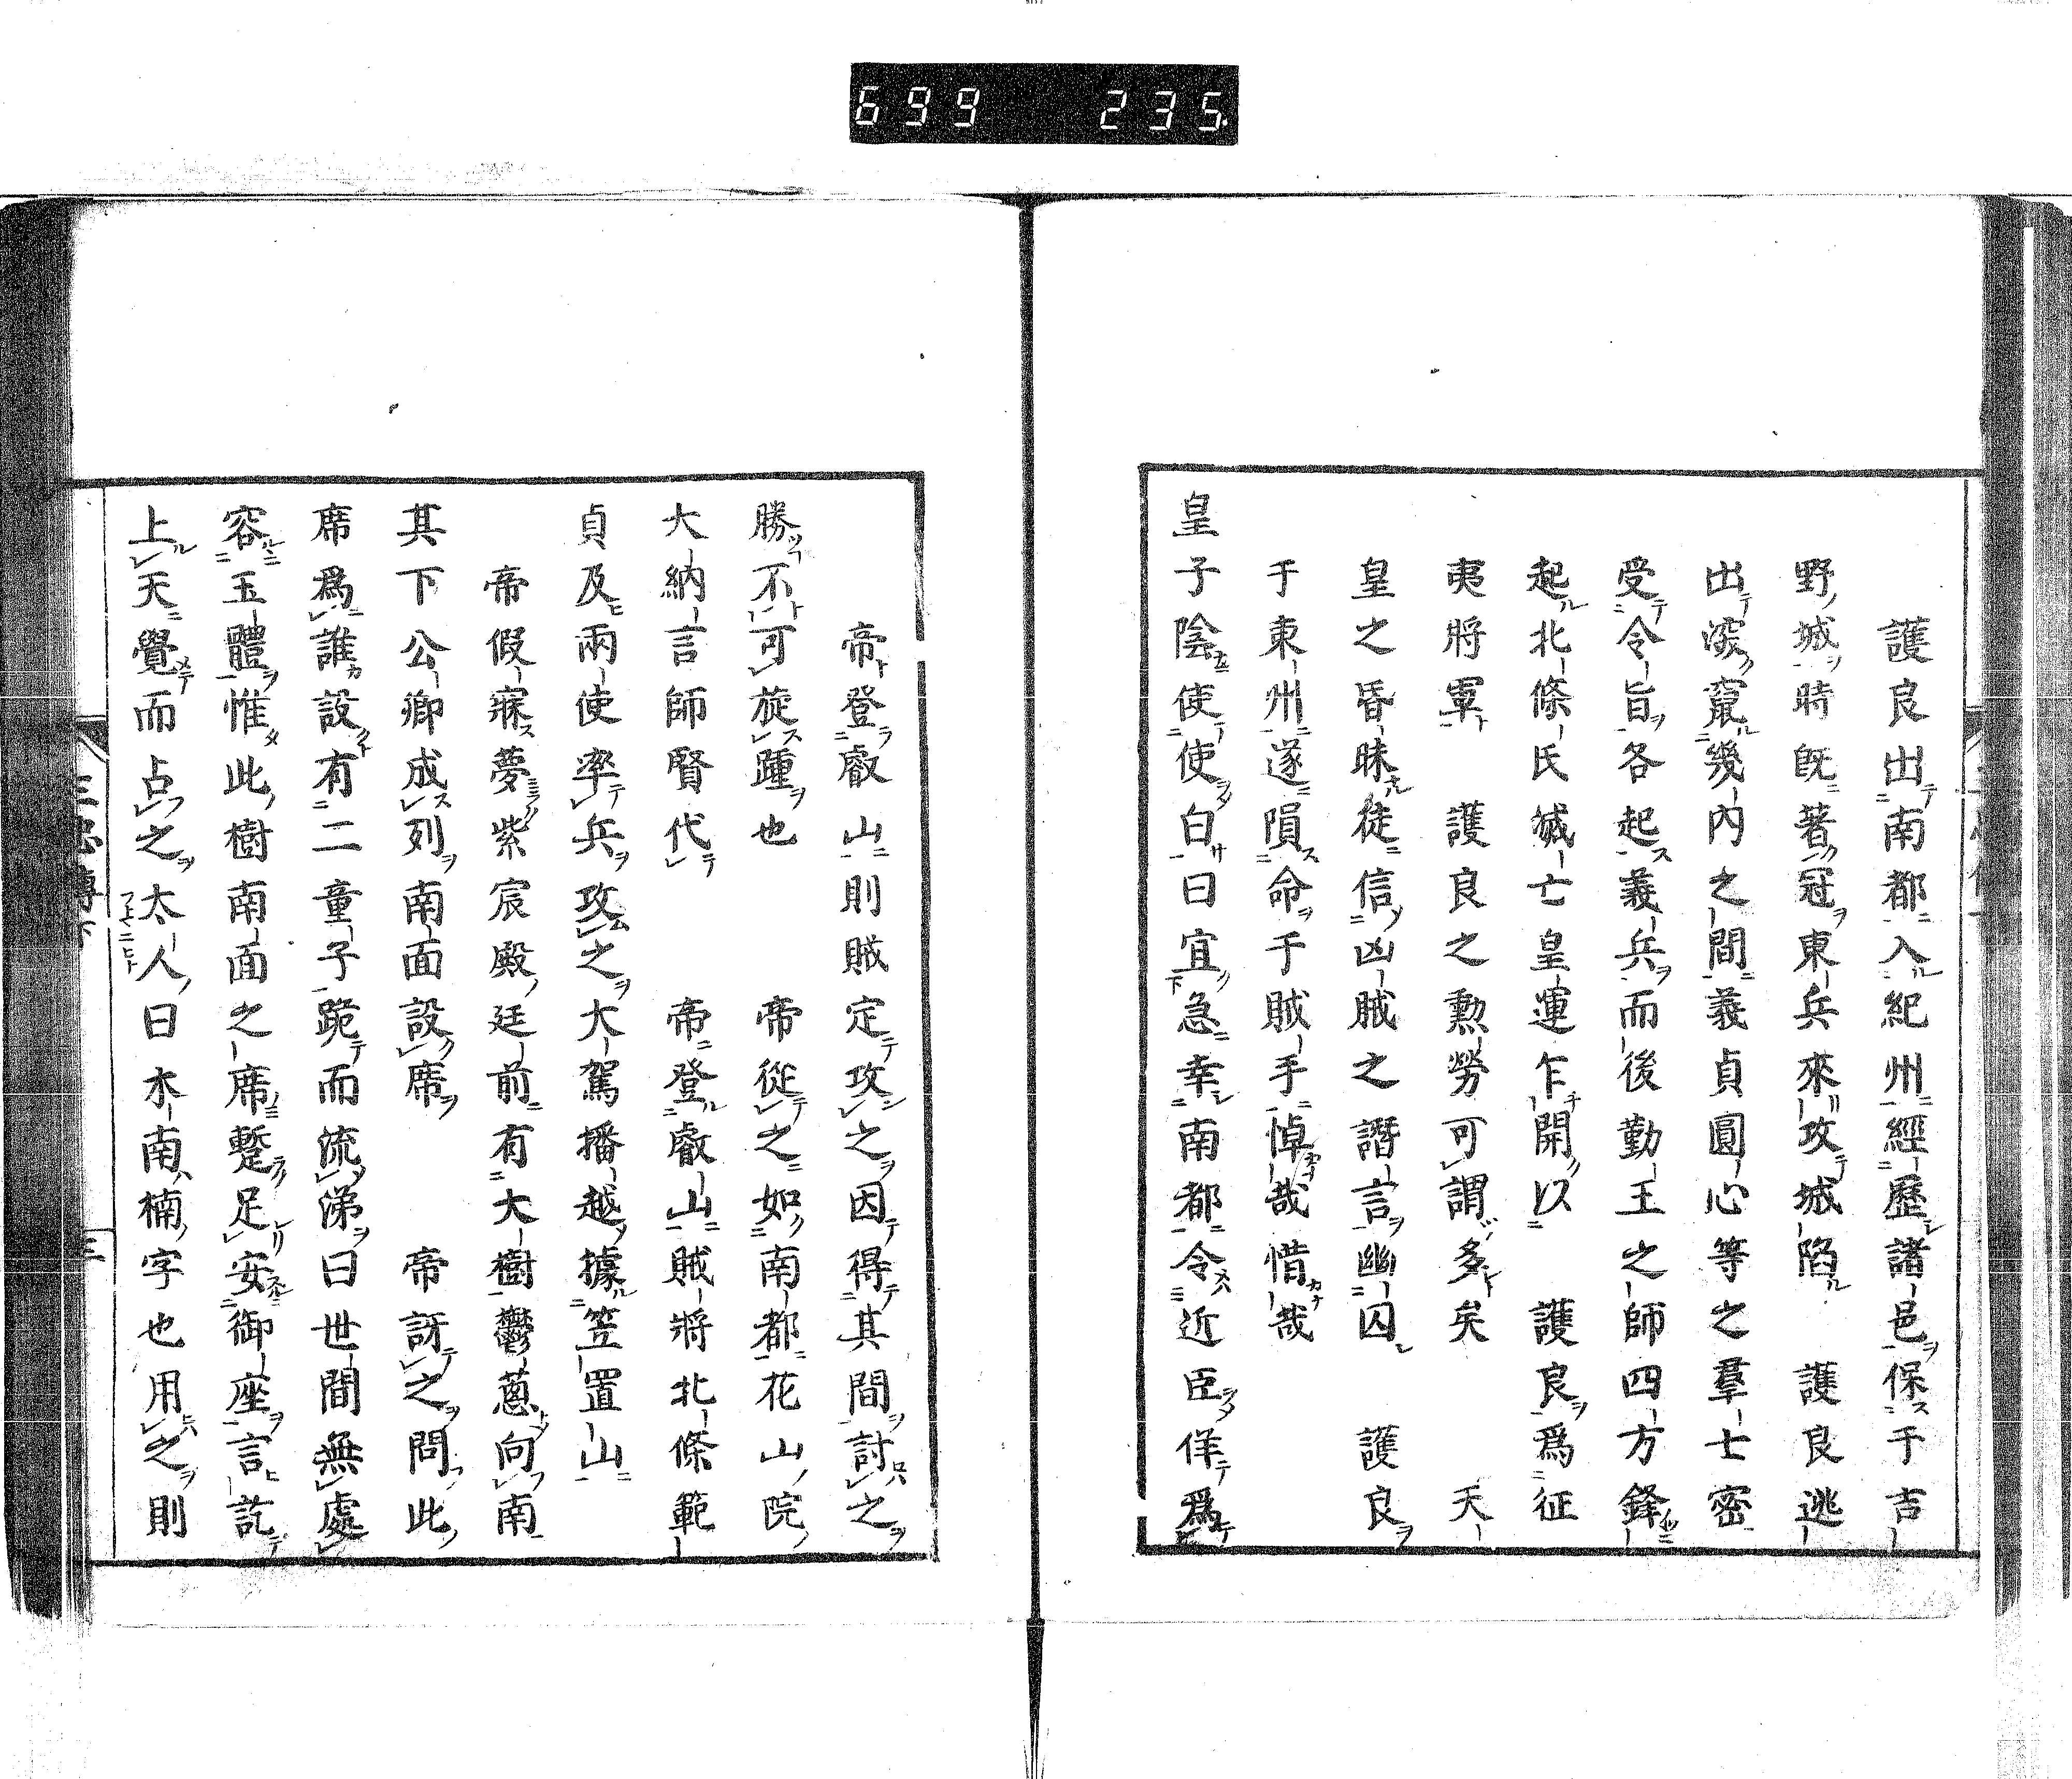 699 235
護良出南都入紀州經歷諸邑保于吉
野城時既著冠東兵來攻城陷 護良逃
出深竄幾內之間義貞圓心等之羣士密
受令旨各起義兵而後勤王之師四方鋒
起北條氏滅亡皇運乍開以 護良爲征
夷將軍 護良之勲勞可謂多矣 天
皇之昏昧徒信凶賊之譖言幽囚 護良
于東州遂隕命于賊手悼哉惜哉
皇子陰使使白曰宜急幸南都令近臣佯爲
帝登叡山則賊定攻之因得其間討之
勝不可旋踵也 帝從之如南都花山院
大納言師賢代 帝登叡山賊將北條範
貞及兩使率兵攻之大駕播越據笠置山
帝假寐夢紫宸殿廷前有大樹鬱蔥向南
其下公卿成列南面設席 帝訝之問此
席爲誰設有二童子跪而流涕曰世間無處
容玉體惟此樹南面之席蹔足安御座言訖
上天覺而占之太人曰木南楠字也用之則
三忠傳下 三